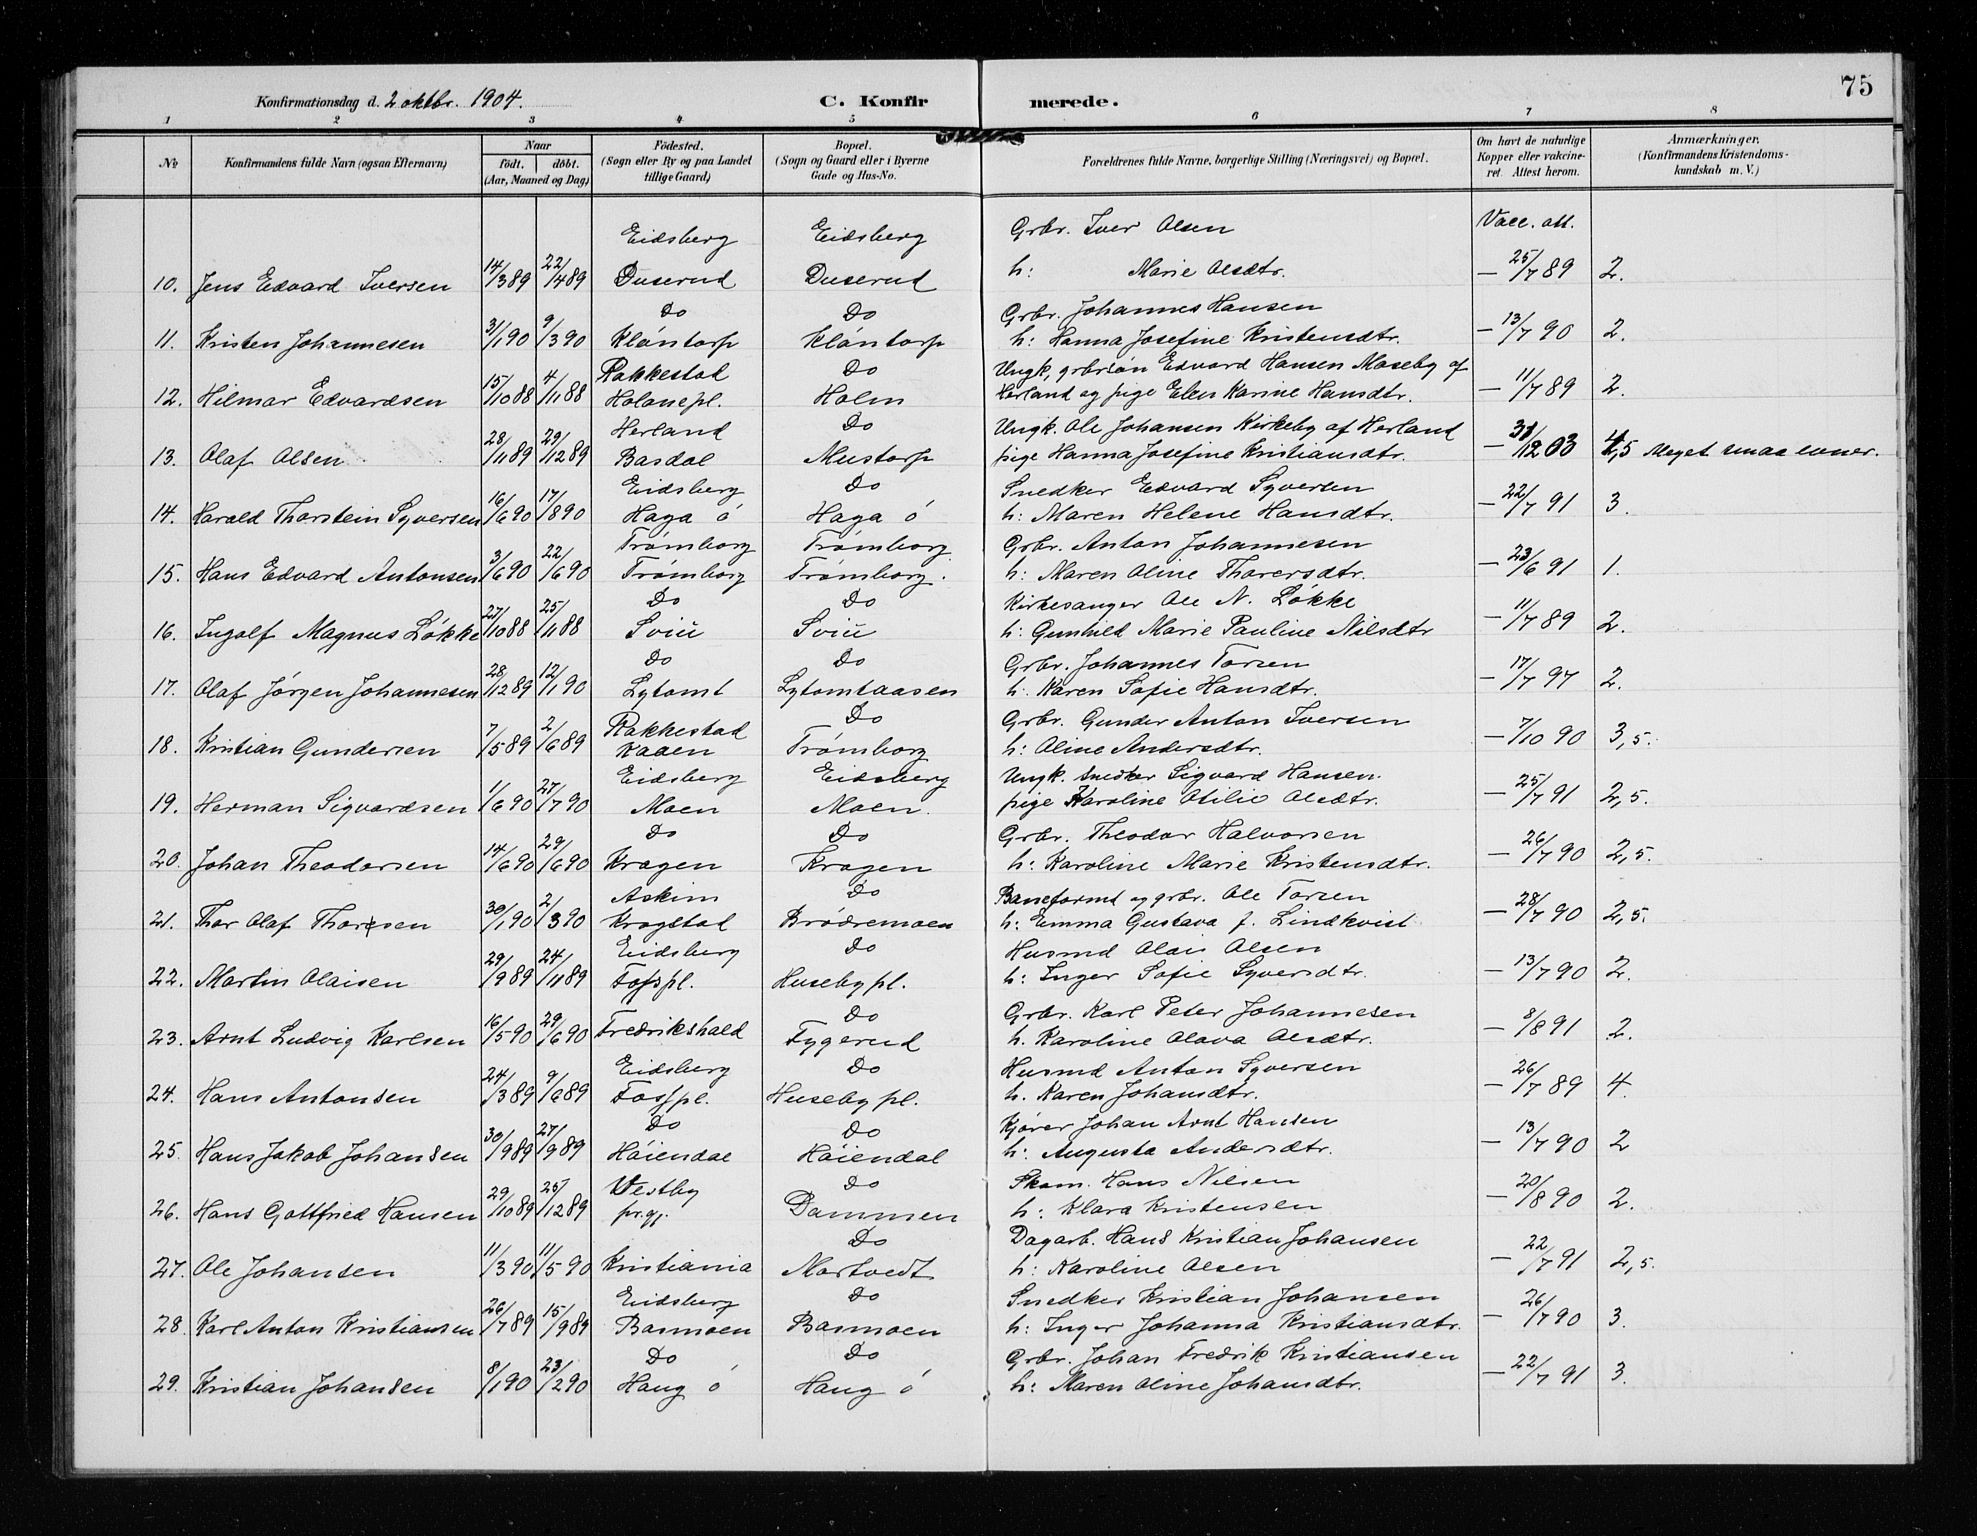 75
Konfirmationsdag d. 2 oktbr. 1904. C. Konfirmerede.
1 2 3 4 5 6 7 8
No Konfirmandens fulde Navn (ogsaa Efternavn) Naar født. døbt. (Aar, Maaned og Dag) Fødested. (Sogn eller By og paa Landet tillige Gaard) Bopæl. (Sogn og Gaard eller i Byerne Gade og Hus-No. Forældrenes fulde Navne, borgerlige Stilling (Næringsvei) og Bopæl. Om havt de naturlige Kopper eller vakcineret. Attest herom. Anmærkninger. (Konfirmandens Kristendomskundskab m. V.)
Eidsberg Eidsberg Grbr. Iver Olsen Vacc. att.
10. Jens Edvard Iversen 14/3 89 22/4 89 Duserud Duserud h: Marie Olsdtr. — 25/7 89 2.
Do Do Grbr. Johannes Hansen
11. Kristen Johannesen 3/1 90 9/3 90 Kløntorp Kløntorp h: Hanna Josefine Kristensdtr. — 13/7 90 2.
Rakkestad Do Ungk, grbrsøn Edvard Hansen Moseby af
12. Hilmar Edvardsen 15/10 88 4/11 88 Holonepl. Holm Herland og pige Elen Karine Hansdtr. — 11/7 89 2.
Herland Do Ungk. Ole Johansen Kirkeby af Herland
13. Olaf Olsen 28/11 89 29/12 89 Basdal Mustorp pige Hanna Josefine Kristiansdtr. — 31/12 03 4,5 Meget smaa evner.
Eidsberg Do Snedker Edvard Syversen
14. Harald Thorstein Syversen 16/6 90 17/8 90 Haga ó Haga ó h: Maren Helene Hansdtr. — 22/7 91 3.
Trømborg Trømborg Grbr. Anton Johannesen
15. Hans Edvard Antonsen 3/6 90 22/6 90 Trømborg Trømborg. h: Maren Oline Thorersdtr. — 23/6 91 1.
Do Do Kirkesanger Ole N. Løkke
16. Ingolf Magnus Løkke 27/10 88 25/11 88 Sviü Sviü h: Gunhild Marie Pauline Nilsdtr — 11/7 89 2.
Do Do Grbr. Johannes Torsen
17. Olaf Jørgen Johannesen 28/12 89 12/1 90 Lytomt Lytomtaasen h: Karen Sofie Hansdtr. — 17/7 97 2.
Rakkestad Do Grbr. Gunder Anton Iversen
18. Kristian Gundersen 7/5 89 2/6 89 Kaaen Trømborg h: Oline Andersdtr. — 7/10 90 3,5.
Eidsberg Eidsberg Ungk. snedker Sigvard Hansen.
19. Herman Sigvardsen 1/6 90 27/7 90 Moen Moen. pige Karoline Otilie Olsdtr. — 25/7 91 2,5.
Do Do Grbr. Theodor Halvorsen
20. Johan Theodorsen 14/6 90 29/6 90 Kragen Kragen h: Karoline Marie Kristensdtr. — 26/7 90 2,5.
Askim Do Baneformd og grbr. Ole Torsen
21. Thor Olaf Thoresen 30/1 90 2/3 90 Krogstad Brødremoen h: Emma Gustava f. Lindkvist — 28/7 90 2,5.
Eidsberg Do Husmd Olai Olsen
22. Martin Olaisen 29/9 89 24/11 89 Fosspl. Huseby pl. h: Inger Sofie Syversdtr. — 13/7 90 2.
Do Grbr. Karl Peter Johannesen
23. Arnt Ludvig Karlsen 16/5 90 29/6 90 Fredrikshald Fygerud h. Karoline Olava Olsdtr. — 8/8 91 2.
Eidsberg Do Husmd Anton Syversen
24. Hans Antonsen 24/3 89 9/6 89 Fosspl. Huseby pl. h. Karen Johansdtr. — 26/7 89 4.
Do Do Kjører Johan Arnt Hansen
25. Hans Jakob Johansen 30/9 89 27/9 89 Høiendal Høiendal h: Augusta Andersdtr. — 13/7 90 2
Vestby Do Skom. Hans Nilsen
26. Hans Gottfried Hansen 29/10 89 25/12 89 pr.gj. Dammen h: Klara Kristensen — 20/8 90 2.
Do Dagarb. Hans Kristian Johansen
27. Ole Johansen 11/3 90 11/5 90 Kristiania Mortvedt h: Karoline Olsen — 22/7 91 2,5.
Eidsberg Do Snedker Kristian Johansen
28. Karl Anton Kristiansen 26/7 89 15/9 89 Basmoen Basmoen h: Inger Johanna Kristiansdtr. — 26/7 90 3.
Do Do Grbr. Johan Fredrik Kristiansen
29. Kristian Johansen 8/1 90 23/2 90 Haug ó Haug ó h: Maren Oline Johansdtr. — 22/7 91 3.